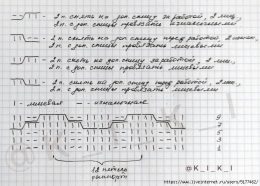 2 п. снять на доп. спицу за работой, 2 лиц,
2 п. с доп. спицы провязать изнаночными
2 п. снять на доп. спицу перед работой, 2 изнан,
2 п. с доп. спицы провязать лицевыми
2 п. снять на доп. спицу за работой, 2 лиц,
2 п. с доп. спицы провязать лицевыми
2 п. снять на доп. спицу перед работой, 2 лиц,
2 п. с доп. спицы провязать лицевыми
I - лицевая — - изнаночная
9
7
5
3
1
18 петель
раппорт
@K_I_K_I